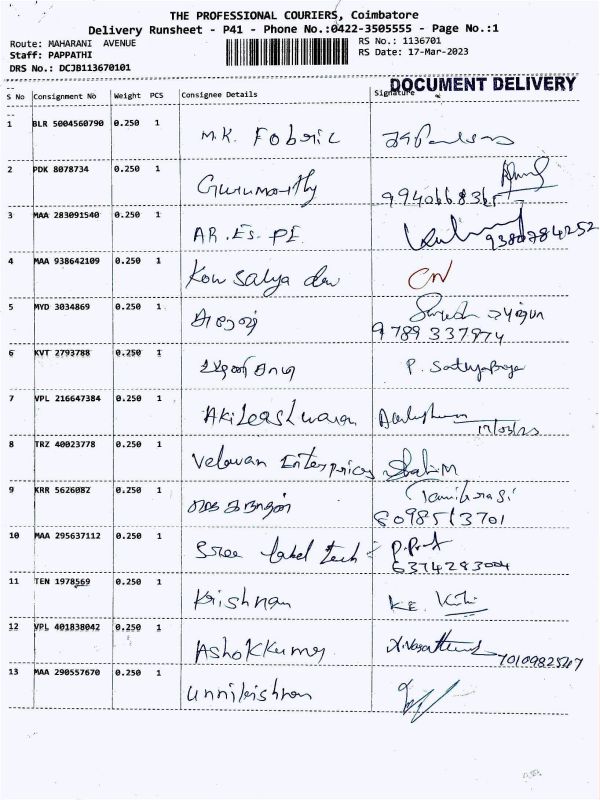 THE PROFESSIONAL COURIERS, Coimbatore
Delivery Runsheet - P41 - Phone No.:0422-3505555 - Page No.:1
Route: MAHARANI AVENUE RS No.: 1136701
Staff: PAPPATHI RS Date: 17-Mar-2023
DRS No.: DCJB113670101
DOCUMENT DELIVERY
S No Consignment No Weight PCS Consignee Details Signature
1 BLR 5004560790 0.250 1 M.K. Fabric
2 PDK 8078734 0.250 1 Gurumoorthy
3 MAA 283091540 0.250 1 AR.ES.PE 9380784252
4 MAA 938642109 0.250 1 Kowsalya dev CN
5 MYD 3034869 0.250 1
9789337974
6 KVT 2793788 0.250 1 P. Sathyapriya
7 VPL 216647384 0.250 1 Akileashwaran
17/03/23
8 TRZ 40023778 0.250 1 Velavan Enterprices
9 KRR 5626082 0.250 1 Tamilarasi
8098513701
10 MAA 295637112 0.250 1 Sree label tech
6374283004
11 TEN 1978569 0.250 1 Krishnan KE.
12 VPL 401838042 0.250 1 Ashokkumar 7010982547
13 MAA 290557670 0.250 1 Unnikrishnan